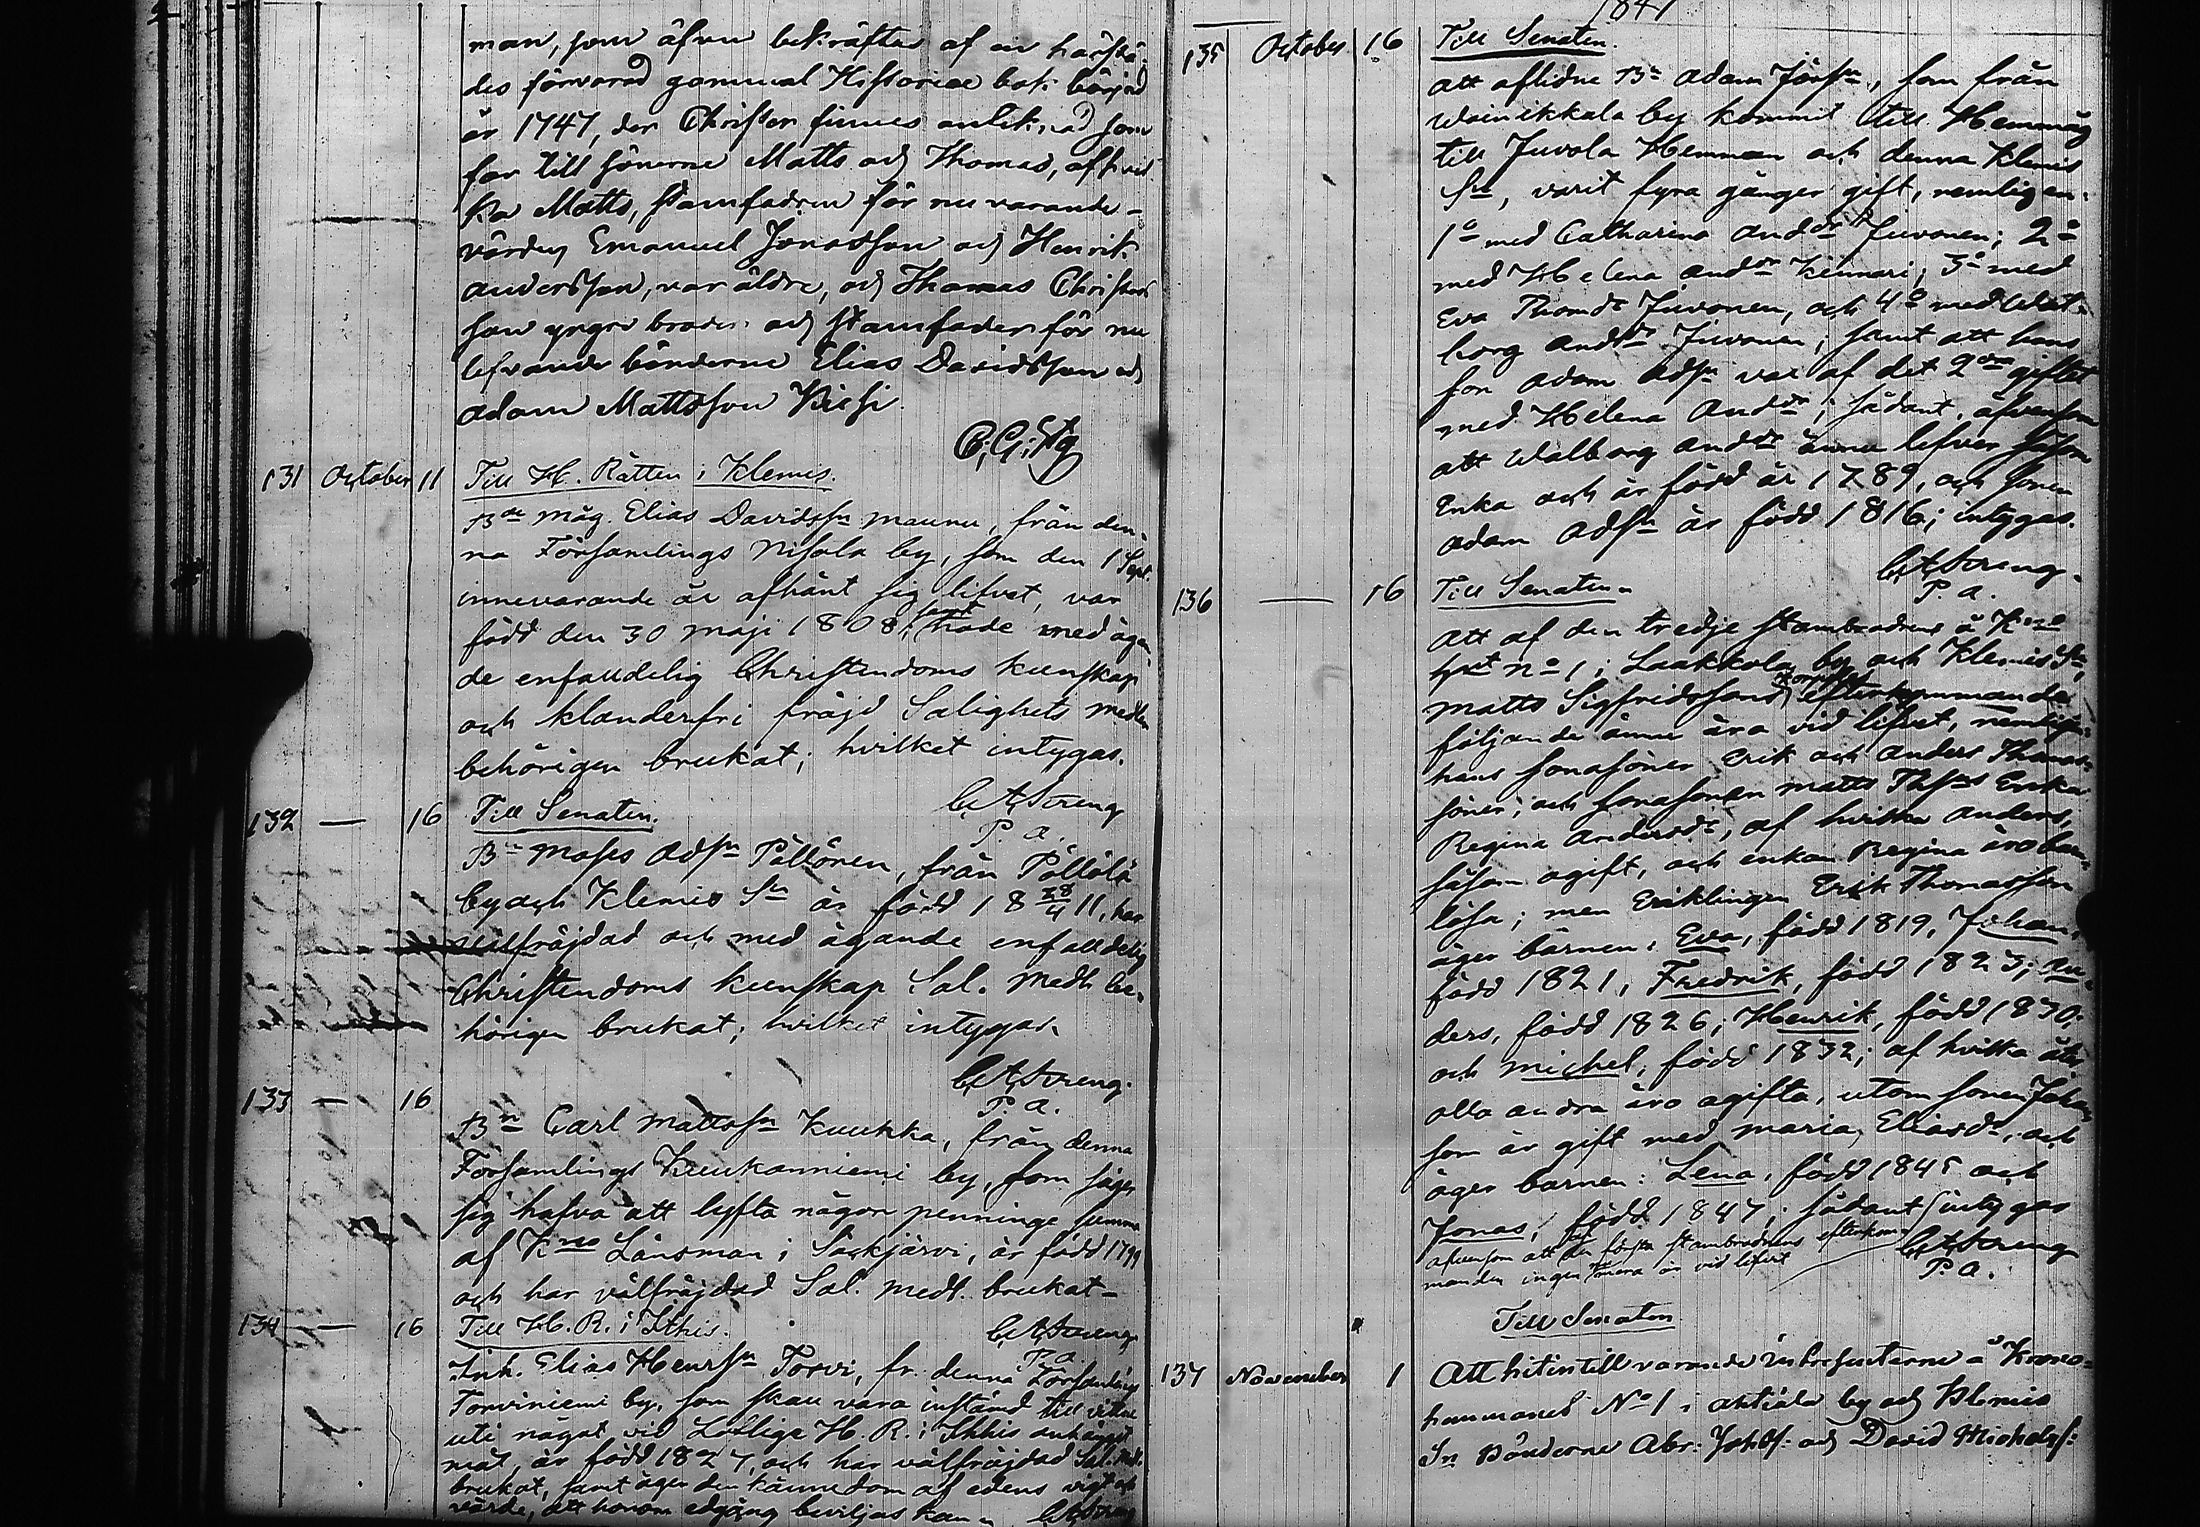 man, som äfven bekräftas af en härstä-
des förvarad gammal Historiae bok börjad
år 1747, der Christer finnes antecknad som
far till sönerne Matts och Thomas, af hvil
ka Matts, stamfadren för nu varande
värden Emanuel Jonasson och Henrik
Andersson, var äldre, och Thomas Christers
son yngre broder och stamfader för nu
lefvande bönderne Elias Davidsson och
Adam Mattsson Kiesi.
131 October 11 Till H. Rätten i Klemis.
Bde måg. Elias Davidssn Maunu, från den-
na Församlings Nisala by, som den 1 Sept.
innevarande år afhänt sig lifvet, var
född den 30 Maji 1808, samt hade med ägan-
de enfaldelig Christendoms kunskap
och klanderfri fräjd Salighets medlen
behörigen brukat; hvilket intygas.
C A Streng
P. a.
132 — 16 Till Senaten.
Bn Moses Adsn Pöllönen, från Pöllölä
by och Klemis Sn är född 18 28/4 11, har
fräjdad och med ägande enfaldelig
Christendoms kunskap Sal. Medl. be-
hörigen brukat; hvilket intygas.
C A Streng.
P. a.
133 — 16
Bn Carl Mattssn Kuukka, från denna
Församlings Kuukanniemi by, som säger
sig hafva att lyfta någon penninge summa
af Kno Länsman i Säckjärvi, är född 1799
och har välfräjdad Sal. Medl. brukat
C A Streng
P. a.
134 — 16 Till H. R. i Ithis.
Inh. Elias Henrssn Torvi, fr. denna Församlings
Torviniemi by, som skall vara instämd till vittne
uti något vid Lofliga H. R. i Ithis anhängigt
mål, är född 1827, och har välfräjdad Sal. Med.
brukat, samt äger den kännedom af edens vigt och
värde, att honom edgång beviljas kan. C A Streng
1847
135 October 16 Till Senaten.
att aflidne Bn Adam Jörssn, som från
Wainikkala by kommit till Hemmåg
till Juvola Hemman och denna Klemis
Sn, varit fyra gånger gift, nemligen:
1o med Catharina Anddr Juvonen; 2o
med Helena Anddr Kinnari; 3o med
Eva Thomdr Juvonen, och 4o med Wal-
borg Anddr Juvonen; samt att hans
son Adam Adsn var af det 2dra giftet
med Helena Anddr; sådant, äfvensom
att Walborg Anddr ännu lefver såsom
Enka och är född år 1789, och sonen
Adam Adsn är född 1816; intygas.
C A Streng.
P. a.
136 — 16 Till Senaten.
Att af den tredje stambrodrens å Kno
hmt No 1 i Laakkola by och Klemis Sn,
Matts Sigfridssons efterkommande
följande ännu äro vid lifvet, nemligen:
hans sonasöner Erik och Anders Thomas-
söner; och sonasonen Matts Thssns Enka
Regina Andersdr, af hvilka Anders,
såsom ogift, och enkan Regina äro barn-
lösa; men Enklingen Erik Thomasson
äger barnen: Eva, född 1819, Johan,
född 1821, Fredrik, född 1823; An-
ders, född 1826; Henrik, född 1830;
och Michel, född 1832; af hvilka åter
alla andra äro ogifta, utom sonen Johan
som är gift med Maria Eliasdr, och
äger barnen: Lena, född 1845 och
Jonas, född 1847; sådant intygas
äfvensom att den första stambrodrens efterkom-
mande ingen mera är vid lifvet
C A Streng
P. a.
Till Senaten
137 November 1 Att hitintill varande Inbesuterne å Krono-
hemmanet No 1 i Ahtiala by och Klemis
Sn Bönderne Abr: Johss: och David Michelss: